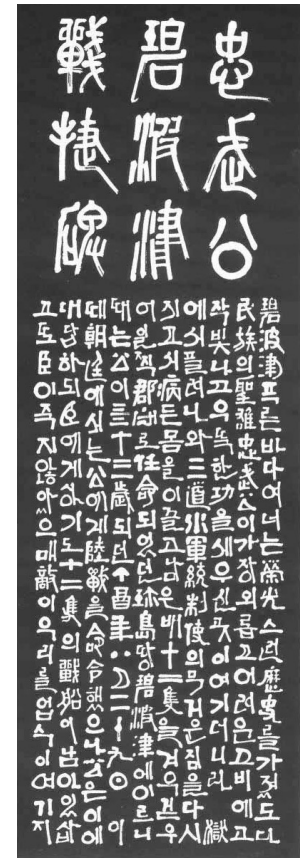 忠武公
碧波津
戰捷碑
碧波津푸른바다여너는榮光스런歷史를가졌도다
民族의聖雄忠武公이가장외롭고어려운고비에고
작빛나고우뚝한功을세우신곳이여기더니라獄
에서풀려나와三道水軍統制使의무거운짐을다시
지고서病든몸을이끌고남은배十二隻을겨우걷우
어일찍郡守로任命되었던珍島땅碧波津에이르니
때는公이五十三歲되던丁酉年八月二十九日이
때朝廷에서는公에게陸戰을命令했으나公은이에
대답하되臣에게상기도十二隻의戰船이남아있삽
고또臣이죽지않았으매敵이우리를업수이여기지